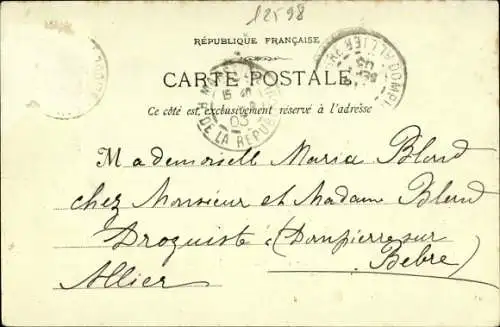 12598
RÉPUBLIQUE FRANÇAISE
CARTE POSTALE
Ce côté est exclusivement réservé à l'adresse
R. DE LA RÉPUBL
DOMPI
ALLIER
Mademoiselle Maria Blond
chez Monsieur et Madam Blond
Droguiste à (Dompierre sur
Bebre)
Allier